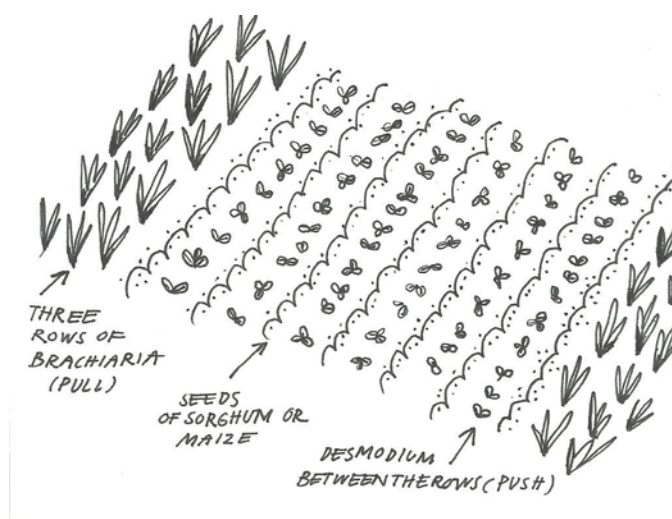 THREE
ROWS OF
BRACHIARIA
(PULL)
SEEDS
OF SORGHUM OR
MAIZE
DESMODIUM
BETWEEN THE ROWS (PUSH)